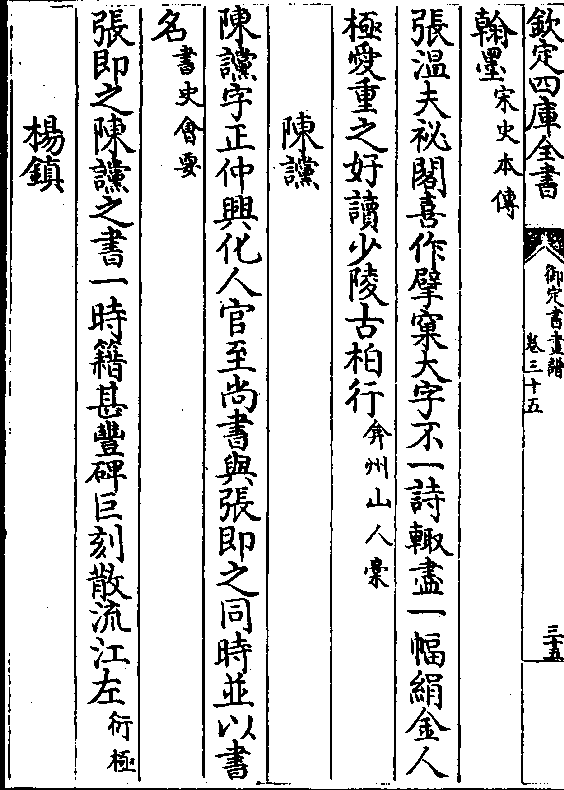 欽定四庫全書
御定書畫譜
卷三十五
三十五
翰墨宋史本傳
張溫夫祕閣喜作擘窠大字不一詩輙盡一幅絹金人
極愛重之好讀少陵古柏行弇州山人稾
陳讜
陳讜字正仲興化人官至尚書與張即之同時並以書
名書史會要
張即之陳讜之書一時籍甚豐碑巨刻散流江左衍極
楊鎮